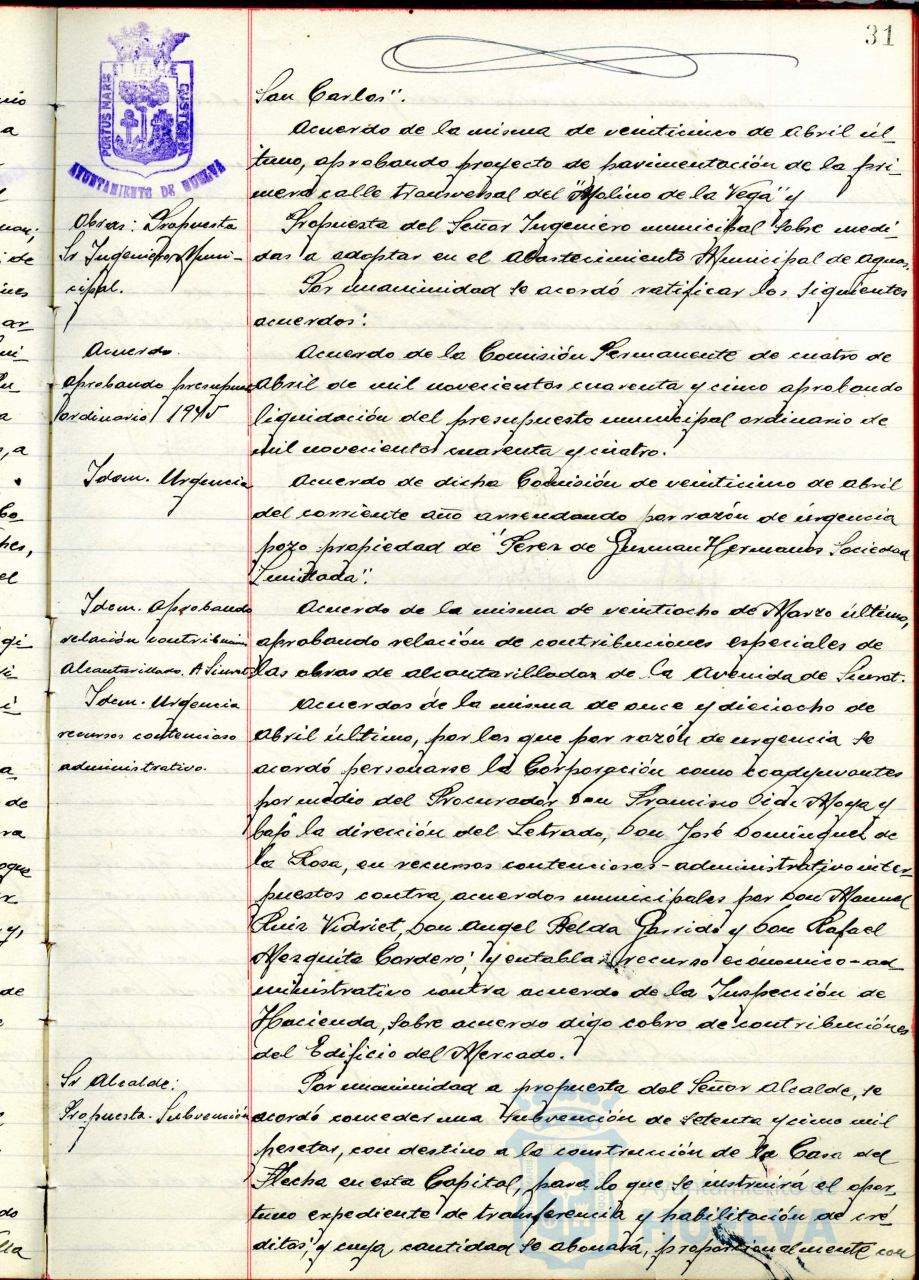 31
PORTUS MARIS
ET TERRE
CUSTODIA
AYUNTAMIENTO DE HUELVA
San Carlos".
Acuerdo de la misma de veinticinco de Abril úl
timo, aprobando proyecto de pavimentación de la pri-
mera calle transversal del "Molino de la Vega" y
Obras: Propuesta
Sr Ingeniero Muni-
cipal.
Propuesta del Señor Ingeniero municipal sobre medi
das a adoptar en el Abastecimiento Municipal de aguas.
Por unanimidad se acordó ratificar los siguientes
acuerdos:
Acuerdo.
aprobando presupues
ordinario 1945
Acuerdo de la Comisión Permanente de cuatro de
Abril de mil novecientos cuarenta y cinco aprobando
liquidación del presupuesto municipal ordinario de
mil novecientos cuarenta y cuatro.
Idem. Urgencia
Acuerdo de dicha Comisión de veinticinco de abril
del corriente año arrendando por razón de urgencia
pozo propiedad de "Perez de Guzman Hermanos Sociedad
Limitada".
Idem. Aprobando
relación contribución
Alcantarillado. A Siurot
Acuerdo de la misma de veintiocho de Marzo último,
aprobando relación de contribuciones especiales de
las obras de alcantarillados de la Avenida de Siurot.
Idem. Urgencia
recursos contencioso
administrativo.
Acuerdos de la misma de once y dieciocho de
Abril último, por los que por razón de urgencia se
acordó personarse la Corporación como coadyuvantes
por medio del Procurador Don Francisco Oide Moya y
bajo la dirección del Letrado, Don José Dominguez de
la Rosa, en recursos contenciosos-administrativo inter-
puestos contra acuerdos municipales por Don Manuel
Ruiz Vidriet, Don Angel Belda Garrido y Don Rafael
Mezquita Cordero; y entablar recurso económico-ad
ministrativo contra acuerdo de la Inspección de
Hacienda, sobre acuerdo digo cobro de contribuciónes
del Edificio del Mercado.
Sr Alcalde:
Propuesta. Subvención
Por unanimidad a propuesta del Señor Alcalde, se
acordó conceder una subvención de setenta y cinco mil
pesetas, con destino a la construcción de la Casa del
Flecha en esta Capital, para lo que se instruirá el opor-
tuno expediente de transferencia y habilitación de cré-
ditos, y cuya cantidad se abonará, proporcionalmente con
Ayuntamiento de
HUELVA